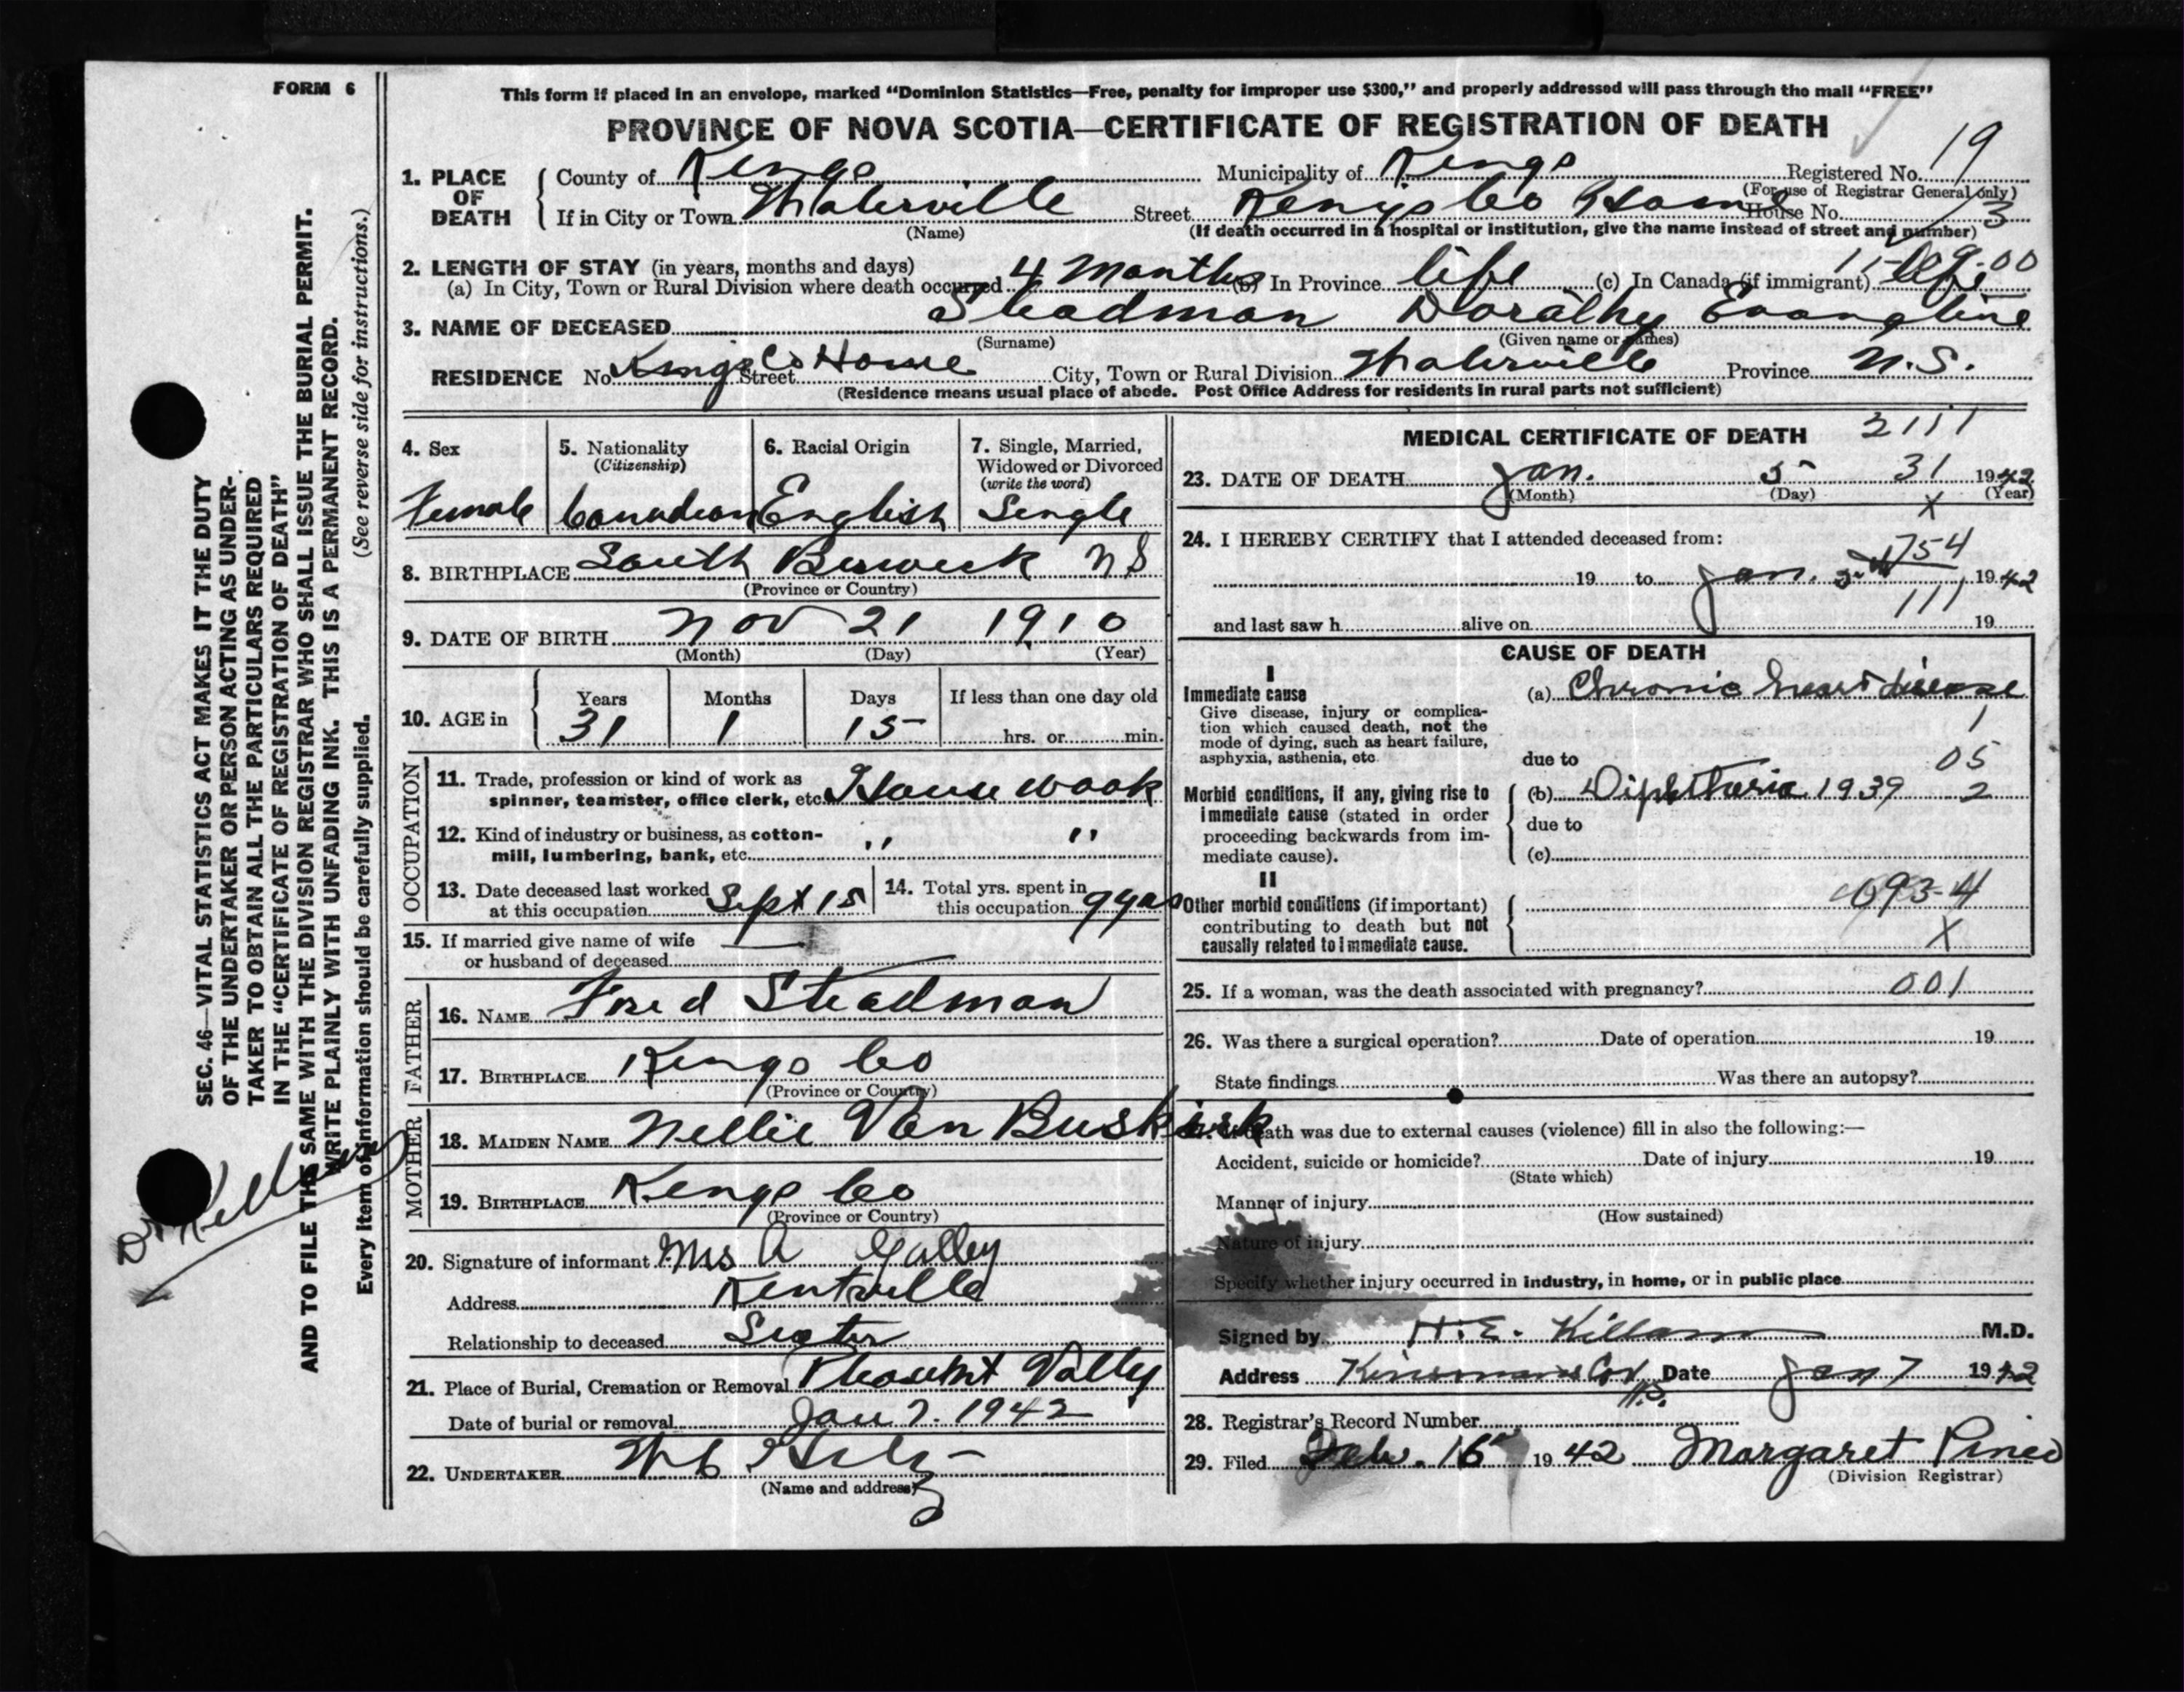 FORM 6
This form if placed in an envelope, marked "Dominion Statistics—Free, penalty for improper use $300," and properly addressed will pass through the mail "FREE"
PROVINCE OF NOVA SCOTIA—CERTIFICATE OF REGISTRATION OF DEATH
1. PLACE OF DEATH
County of Kings Municipality of Kings Registered No. 19
(For use of Registrar General only)
If in City or Town Waterville Street Kings Co Home House No. 3
(Name) (If death occurred in a hospital or institution, give the name instead of street and number)
2. LENGTH OF STAY (in years, months and days)
(a) In City, Town or Rural Division where death occurred 4 Months (b) In Province life (c) In Canada (if immigrant) life
3. NAME OF DECEASED Steadman Dorathy Evangline
(Surname) (Given name or names)
RESIDENCE No. Kings Co Home Street City, Town or Rural Division Waterville Province N.S.
(Residence means usual place of abode. Post Office Address for residents in rural parts not sufficient)
4. Sex
Female
5. Nationality
(Citizenship)
Canadian
6. Racial Origin
English
7. Single, Married,
Widowed or Divorced
(write the word)
Single
8. BIRTHPLACE South Berwick NS
(Province or Country)
9. DATE OF BIRTH Nov 21 1910
(Month) (Day) (Year)
10. AGE in
Years Months Days If less than one day old
31 1 15 hrs. or min.
OCCUPATION
11. Trade, profession or kind of work as
spinner, teamster, office clerk, etc. House wook
12. Kind of industry or business, as cotton-
mill, lumbering, bank, etc. " "
13. Date deceased last worked
at this occupation Sept 15
14. Total yrs. spent in
this occupation 9 yrs
15. If married give name of wife
or husband of deceased
FATHER
16. NAME Fred Steadman
17. BIRTHPLACE Kings Co
(Province or Country)
MOTHER
18. MAIDEN NAME Nellie Van Buskirk
19. BIRTHPLACE Kings Co
(Province or Country)
20. Signature of informant Mrs A Galley
Address Kentville
Relationship to deceased Sister
21. Place of Burial, Cremation or Removal Pleasant Valley
Date of burial or removal Jan 7. 1942
22. UNDERTAKER
(Name and address)
MEDICAL CERTIFICATE OF DEATH 2111
23. DATE OF DEATH Jan. 5 31 1942
(Month) (Day) (Year)
X
24. I HEREBY CERTIFY that I attended deceased from:
754
19 to Jan. 1942
111
and last saw h alive on 19
CAUSE OF DEATH
I
Immediate cause
Give disease, injury or complica-
tion which caused death, not the
mode of dying, such as heart failure,
asphyxia, asthenia, etc.
(a) Chronic heart disease
1
due to 05
Morbid conditions, if any, giving rise to
immediate cause (stated in order
proceeding backwards from im-
mediate cause).
(b) Diphtheria 1939 2
due to
(c)
II
Other morbid conditions (if important)
contributing to death but not
causally related to immediate cause.
093-4
X
25. If a woman, was the death associated with pregnancy? 001
26. Was there a surgical operation? Date of operation 19
State findings Was there an autopsy?
death was due to external causes (violence) fill in also the following:—
Accident, suicide or homicide? Date of injury 19
(State which)
Manner of injury
(How sustained)
Nature of injury
Specify whether injury occurred in industry, in home, or in public place
Signed by H. E. Killam M.D.
Address Kinsmans Cor Date Jan 7 1942
N.S.
28. Registrar's Record Number
29. Filed Feb. 16 1942 Margaret Pineo
(Division Registrar)
SEC. 46—VITAL STATISTICS ACT MAKES IT THE DUTY
OF THE UNDERTAKER OR PERSON ACTING AS UNDER-
TAKER TO OBTAIN ALL THE PARTICULARS REQUIRED
IN THE "CERTIFICATE OF REGISTRATION OF DEATH"
AND TO FILE THE SAME WITH THE DIVISION REGISTRAR WHO SHALL ISSUE THE BURIAL PERMIT.
WRITE PLAINLY WITH UNFADING INK. THIS IS A PERMANENT RECORD.
Every item of information should be carefully supplied. (See reverse side for instructions.)